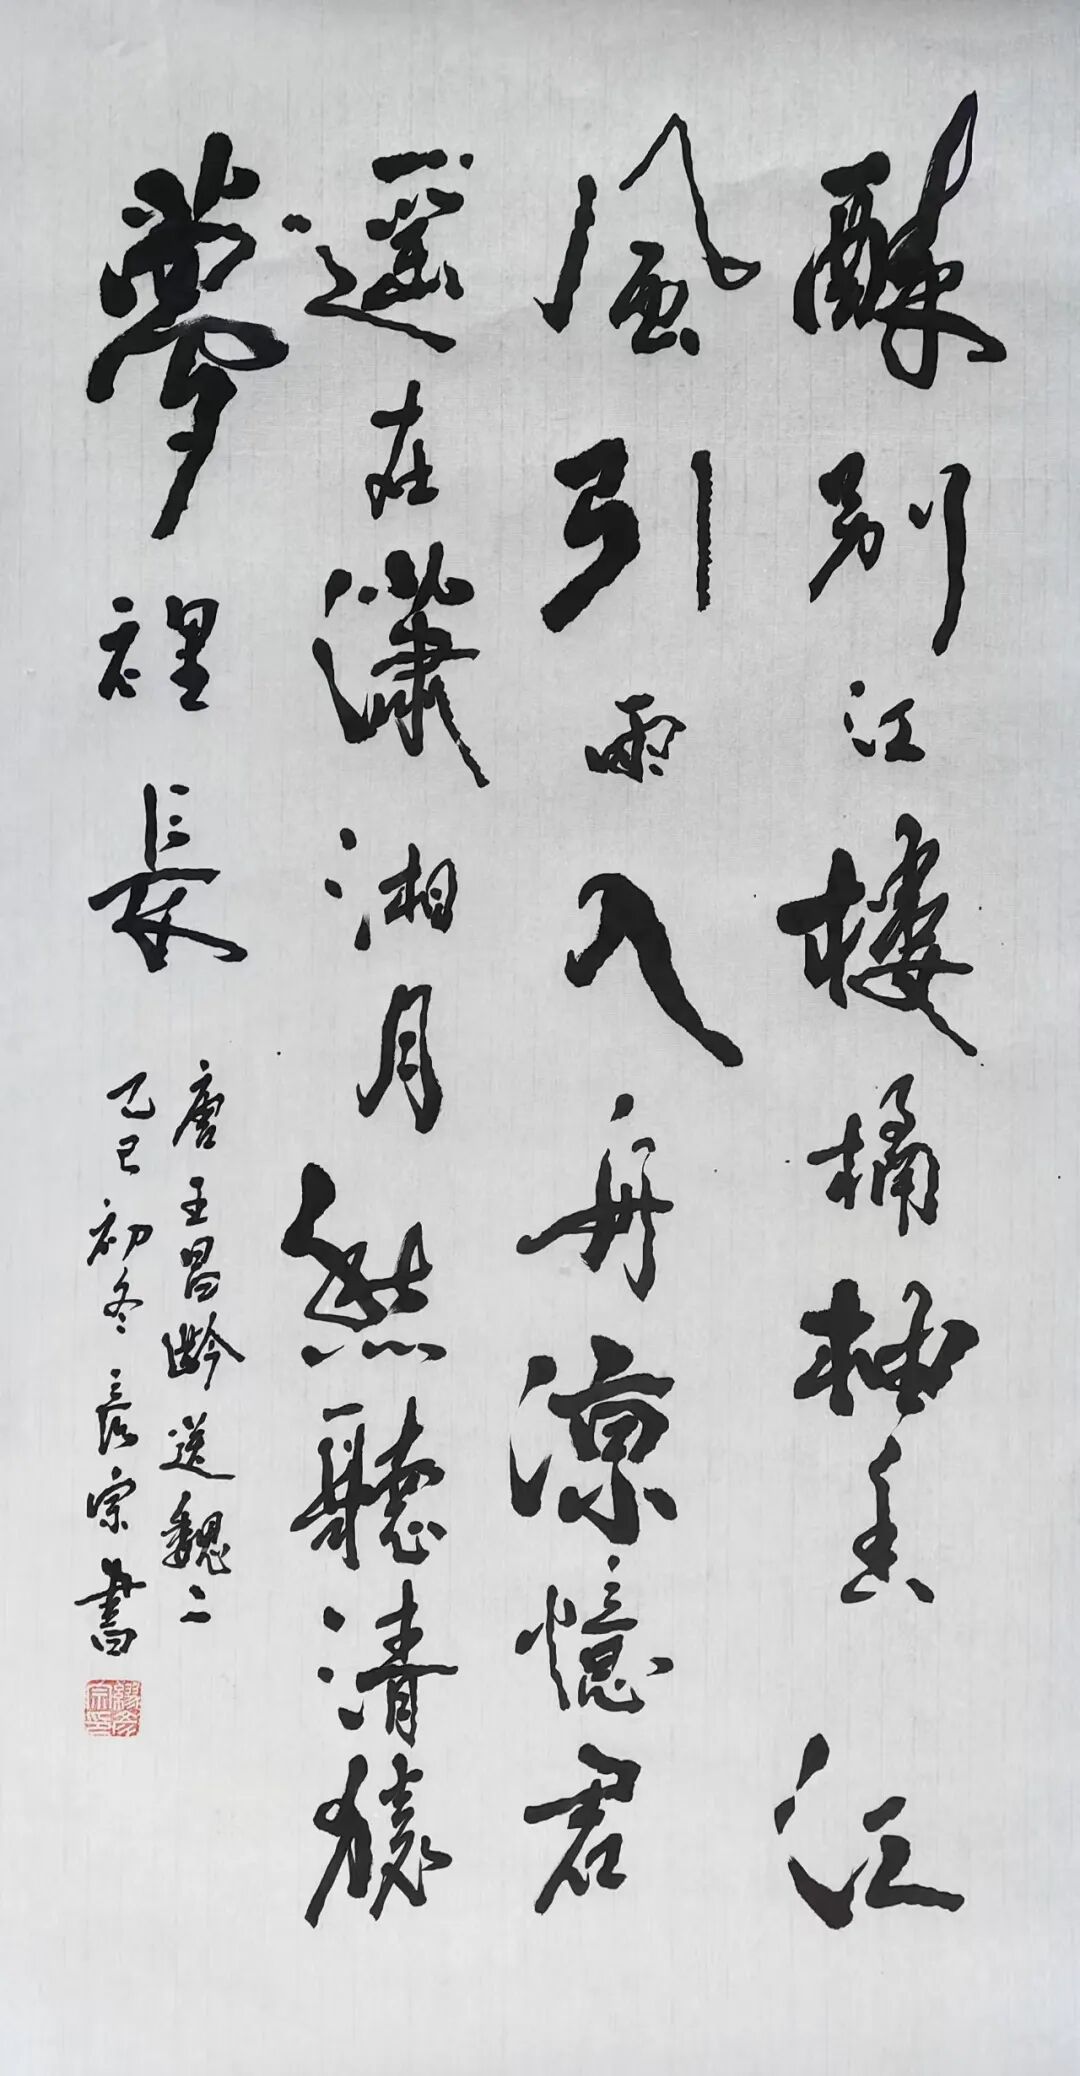 醉別江樓橘柚香江
風引雨入舟涼憶君
遥在瀟湘月愁聽清猿
夢裡長
唐王昌齡送魏二
乙巳初冬彦宗書
繆彦宗印